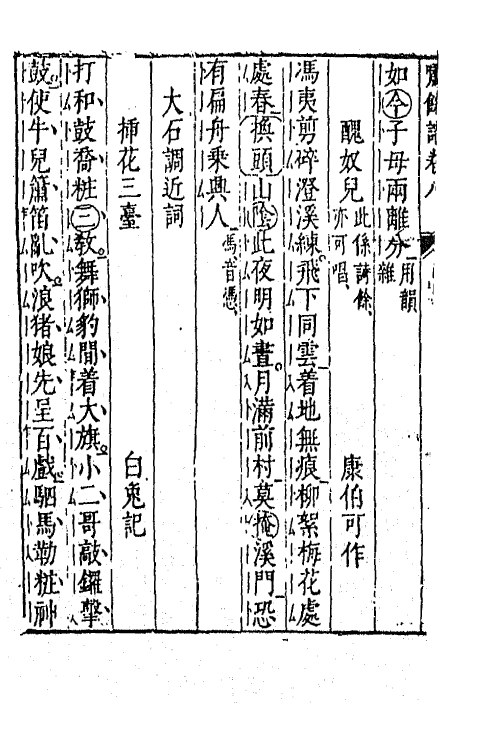 嘯餘譜卷八
如今子母兩離分用韻雜
醜奴兒此係詩餘亦可唱 康伯可作
馮夷剪碎澄溪練飛下同雲着地無痕柳絮梅花處
處春換頭山陰此夜明如晝月滿前村莫掩溪門恐
有扁舟乘興人馮音憑
大石調近詞
揷花三臺 白兔記
打和鼓喬粧三教舞獅豹間着大旗小二哥敲鑼擊
鼓使牛兒簫笛亂吹浪猪娘先呈百戲駟馬勒粧神